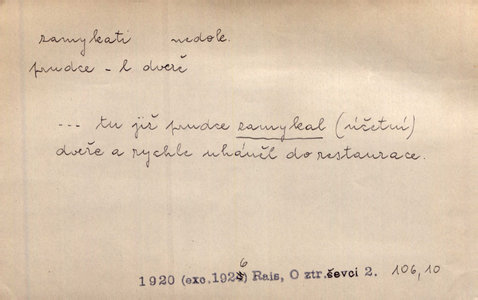 zamykati nedok.
prudce - l dveře
--- tu již prudce zamykal (účetní)
dveře a rychle uháněl do restaurace.
1920 (exc. 1926) Rais, O ztr. ševci 2. 106,10